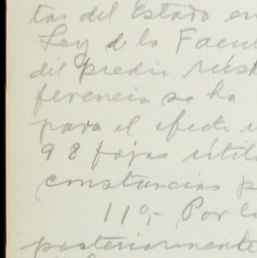 tas del Estado en
Ley de la Facul
del predio rúst
ferencia se ha
para el efecto
98 fojas útil
constancias p
11o,- Por lo
posteriormente